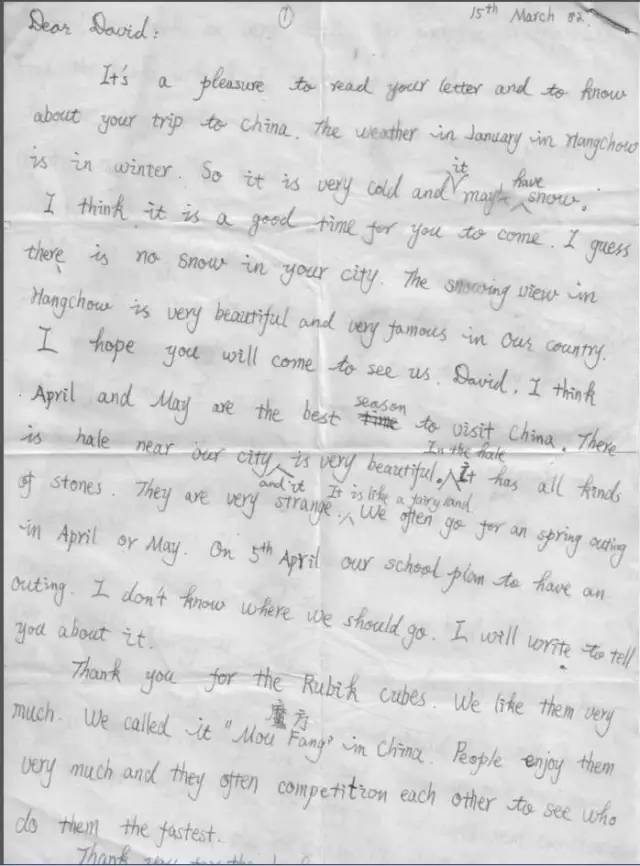 ①
15th March 82.
Dear David:
It's a pleasure to read your letter and to know
about your trip to China. The weather in January in Hangchow
is in winter. So it is very cold and it may have snow.
I think it is a good time for you to come. I guess
there is no snow in your city. The snowing view in
Hangchow is very beautiful and very famous in our country.
I hope you will come to see us. David, I think
April and May are the best time season to visit China. There
is hale near our city and it is very beautiful. In the hale it has all kinds
of stones. They are very strange. It is like a fairy land. We often go for an spring outing
in April or May. On 5th April our school plan to have an
outing. I don't know where we should go. I will write to tell
you about it.
Thank you for the Rubik cubes. We like them very
much. We called it "Mou Fang" 魔方 in China. People enjoy them
very much and they often competition each other to see who
do them the fastest.
Thank you for the